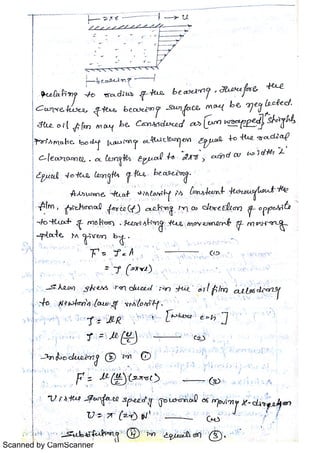 2πr
u
bearing
Relating to radius of the bearing. Therefore the
Curvature of the bearing surface may be neglected.
The oil film may be Considered as [un wrapped] straight,
Prismatic body having a thickness equal to the radial
Clearance. a length Equal to 2πr, and a width 'L'
Equal to the length of the bearing.
Assume that viscosity is Constant throughout the
film, frictional force (F) acting in a direction of opposite
to that of motion. Resisting the movement of moving
plate is given by.
F = τ.A —— (1)
= τ (2πrl)
Shear stress induced in the oil film according
to Newton's law of viscosity.
τ = μR [where c=h]
τ = μ(u/c) —— (2)
Introducing ② in ①
F = μ(u/c)(2πrl) —— (3)
U is the surface speed of journal as moving x-direction
U = π(2r)N' —— (4)
Substituting ④ in equation ③.
Scanned by CamScanner